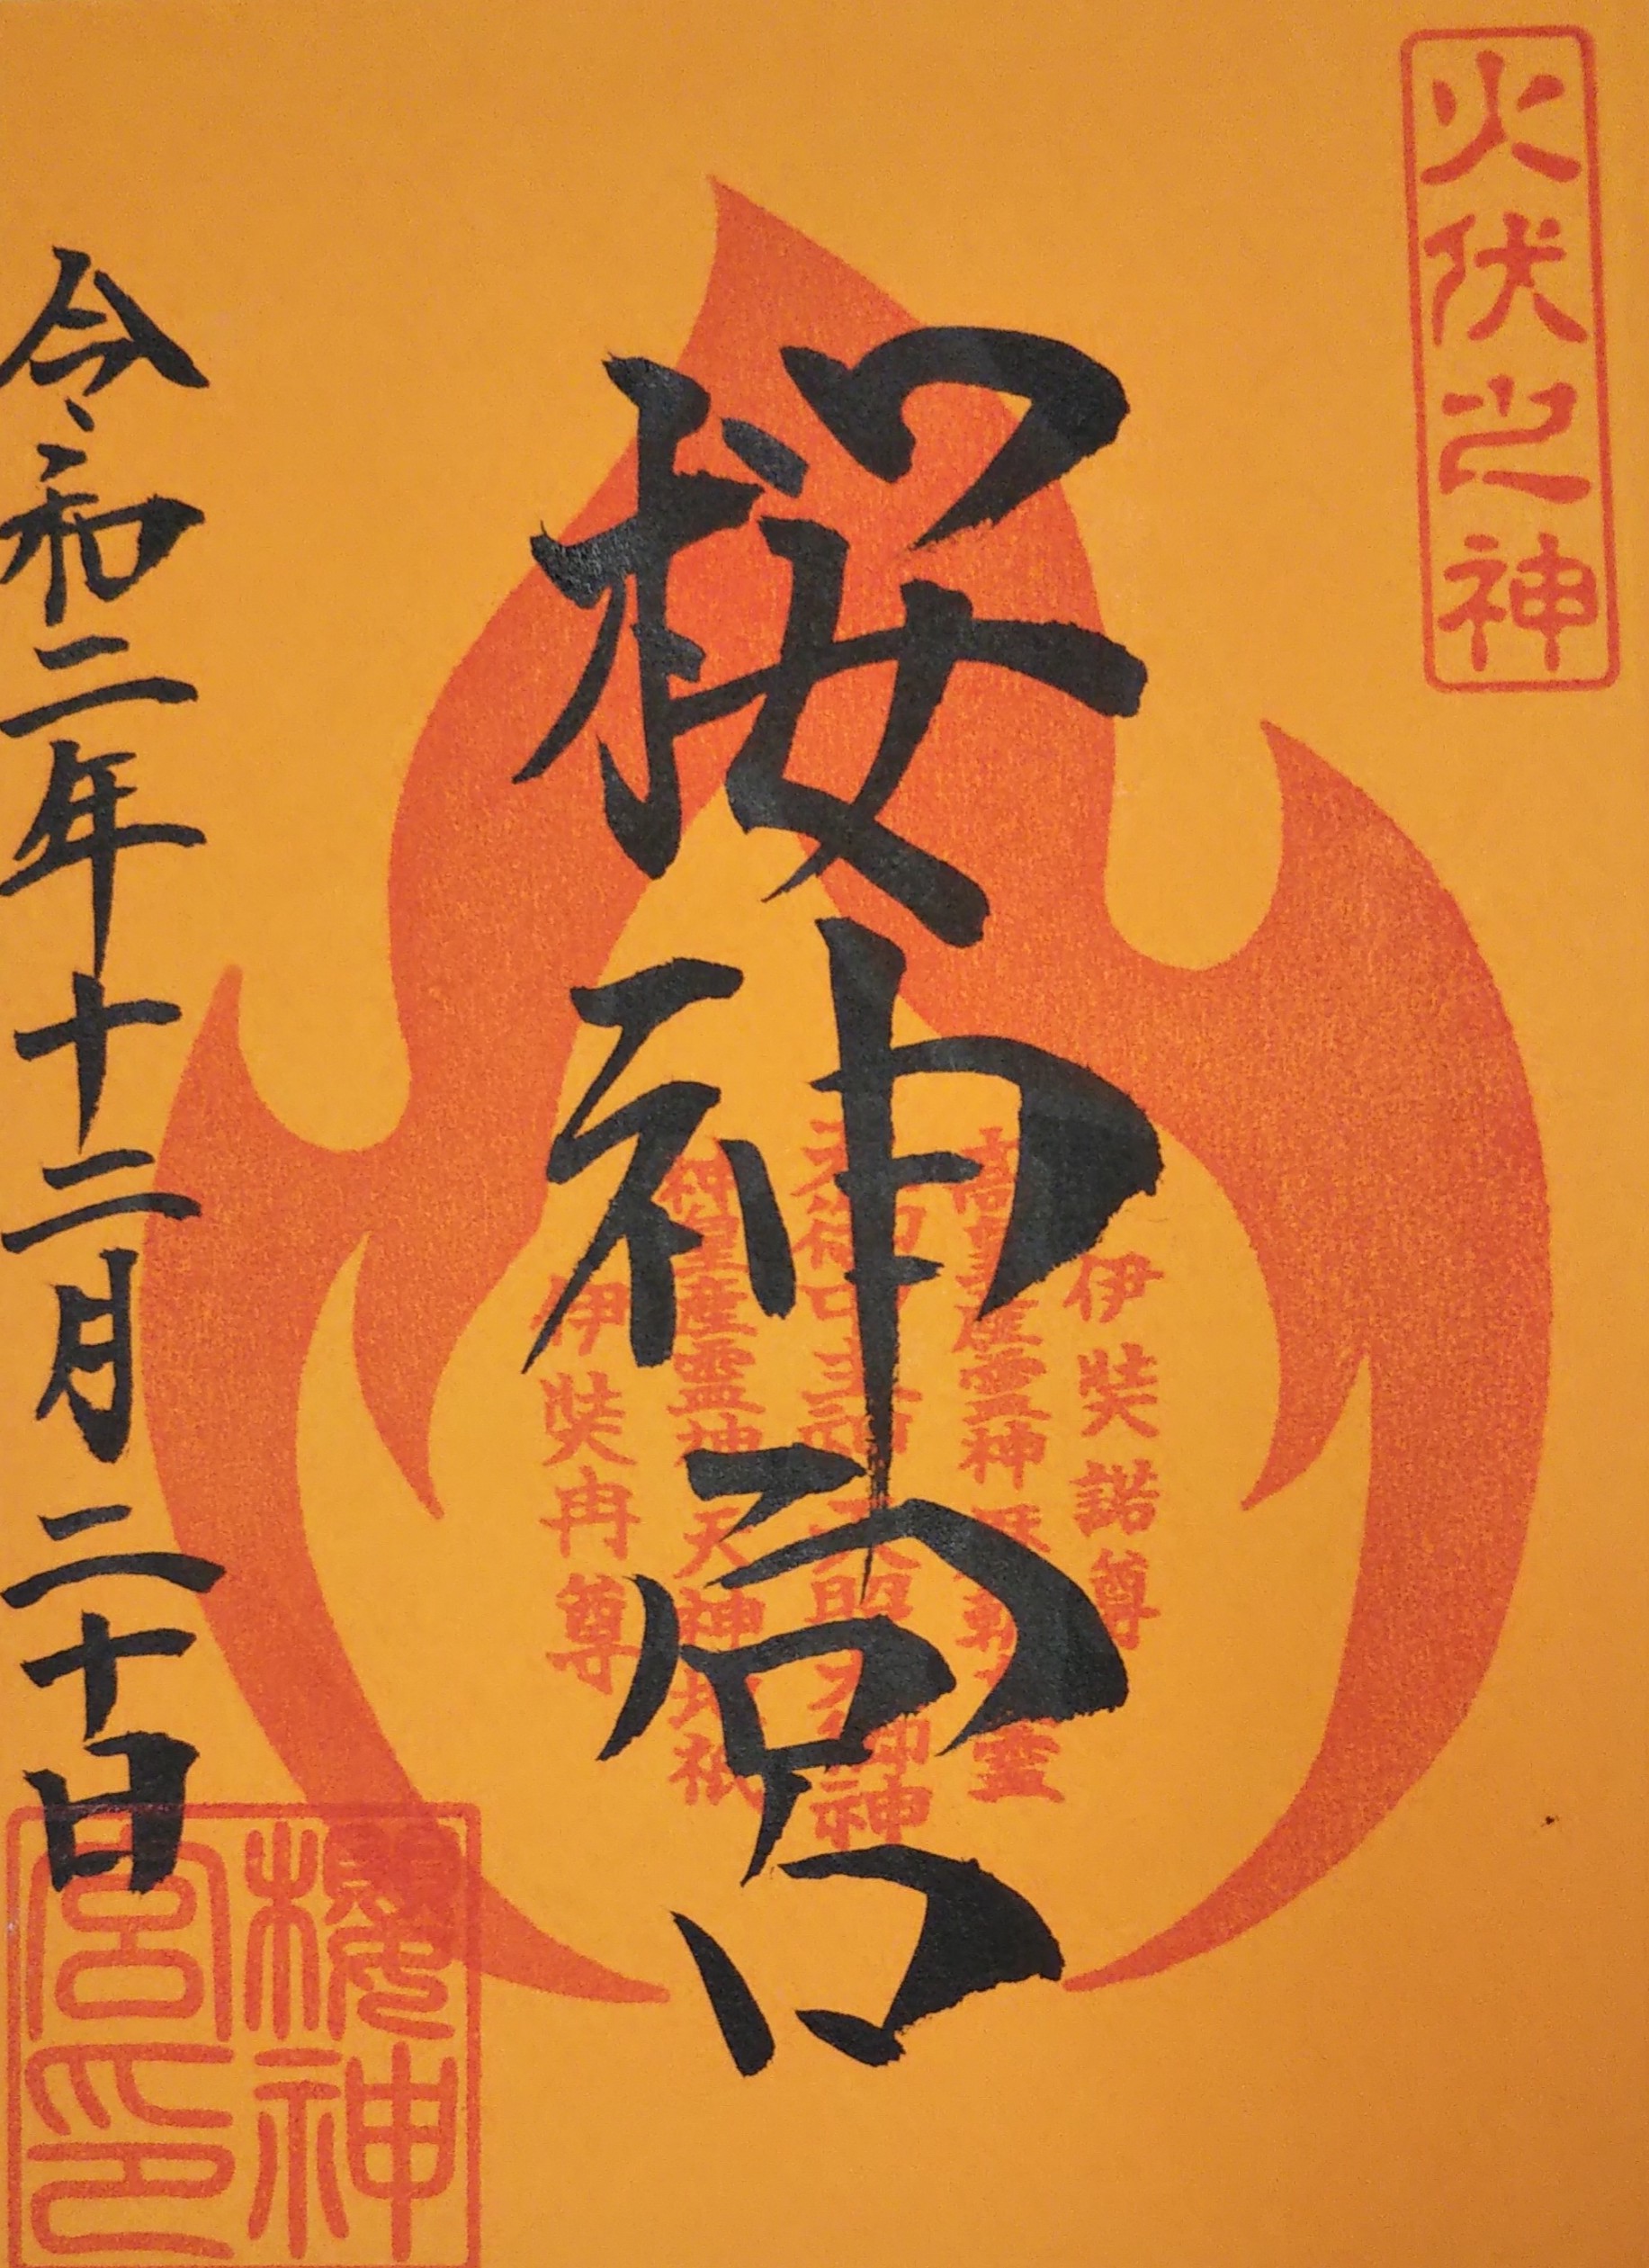 火伏之神
桜神宮
伊奘諾尊
高皇産霊神
天御中主神 天照大御神
神皇産霊神 天神地祇
伊奘冉尊
令和二年十二月二十日
櫻神
宮印